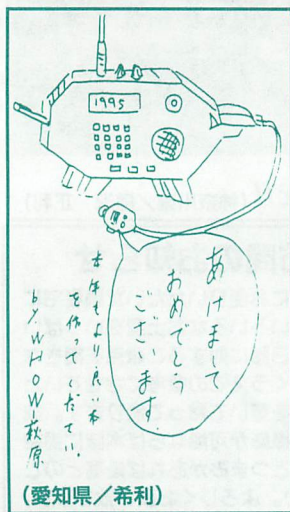 1995
あけまして
おめでとう
ございます。
本年もより良い本
を作ってください。
by.WHOW-萩原
(愛知県/希利)